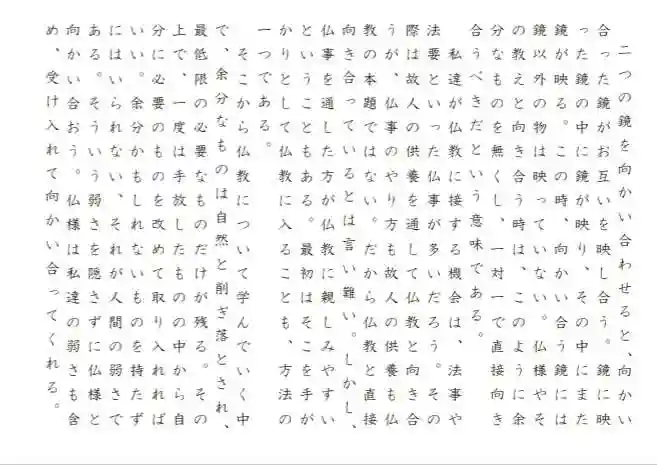 二つの鏡を向かい合わせると、向かい
合った鏡がお互いを映し合う。鏡に映
った鏡の中に鏡が映り、その中にまた
鏡が映る。この時、向かい合う鏡には
鏡以外の物は映っていない。仏様やそ
の教えと向き合う時は、このように余
分なものを無くし、一対一で直接向き
合うべきだという意味である。
　私達が仏教に接する機会は、法事や
法要といった仏事が多いだろう。その
際は故人の供養を通して仏教と向き合
うが、仏事のやり方も故人の供養も仏
教の本題ではない。だから仏教と直接
向き合っているとは言い難い。しかし、
仏事を通した方が仏教に親しみやすい
ということもある。最初はそこを手が
かりとして仏教に入ることも、方法の
一つである。
　そこから仏教について学んでいく中
で、余分なものは自然と削ぎ落とされ、
最低限の必要なものだけが残る。その
上で、一度は手放したものの中から自
分に必要のものを改めて取り入れれば
いい。余分かもしれないものを持たず
にはいられない、それが人間の弱さで
ある。そういう弱さを隠さずに仏様と
向かい合おう。仏様は私達の弱さも含
め、受け入れて向かい合ってくれる。